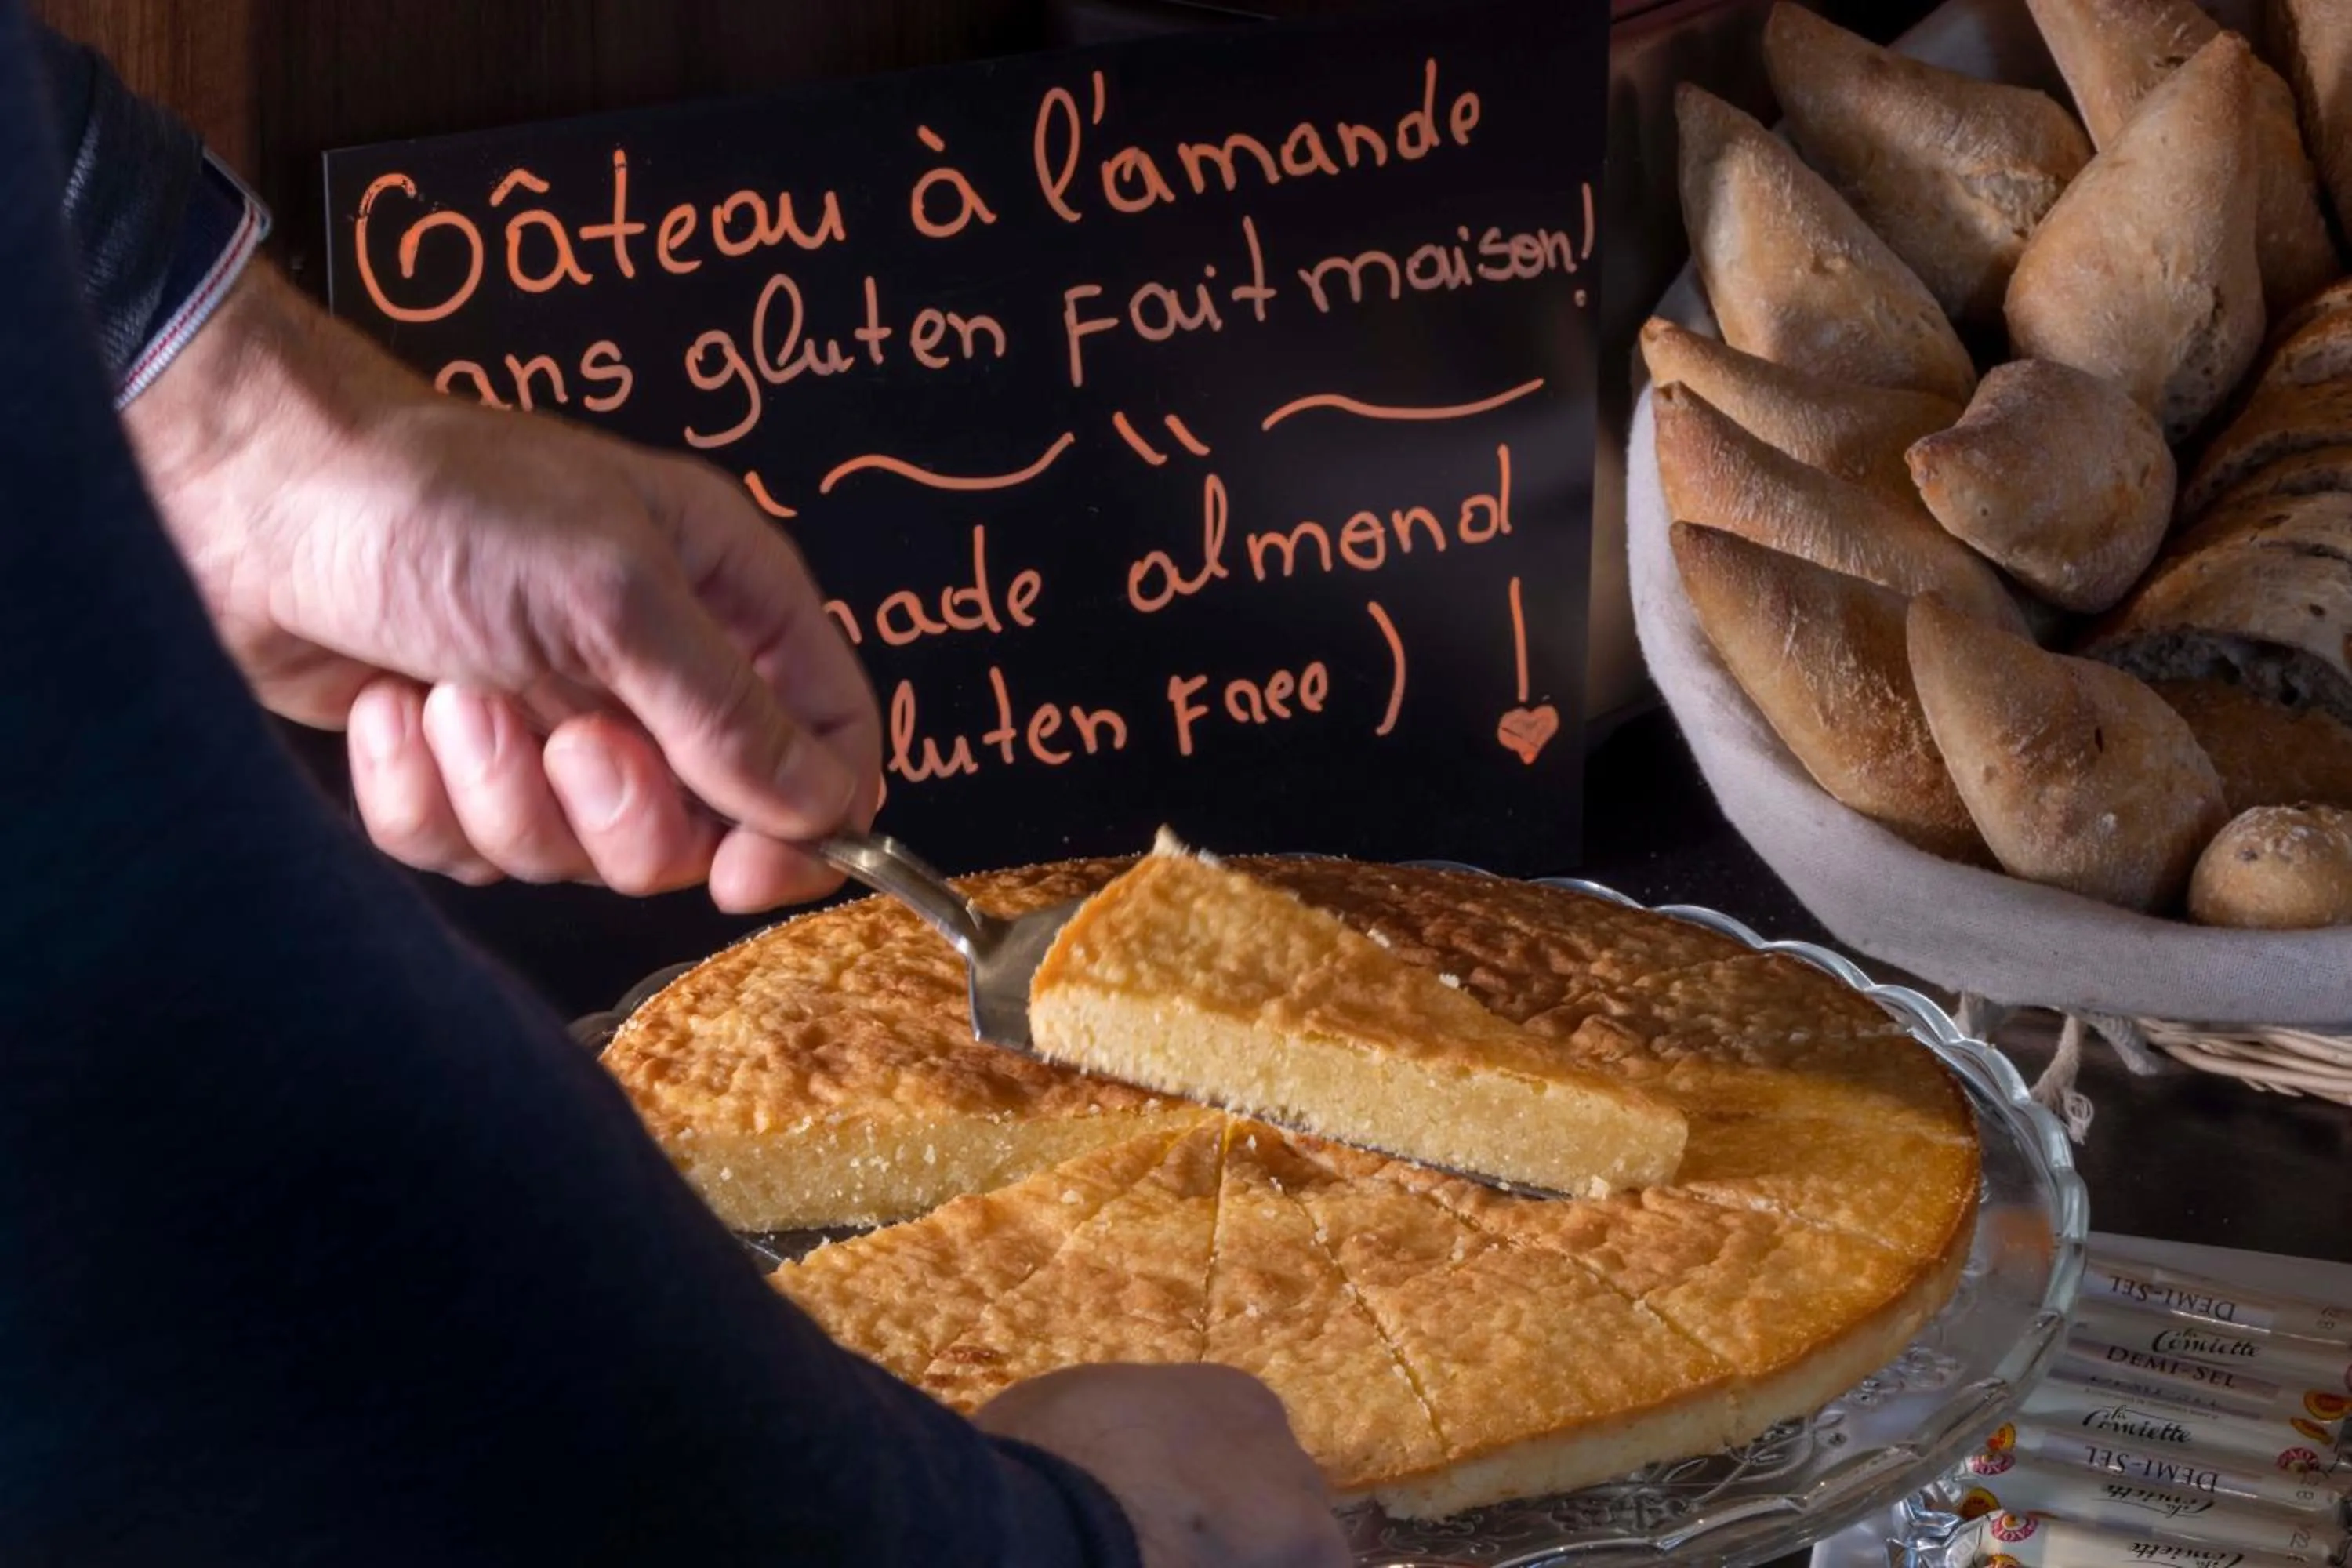 Gâteau à l'amande
ans gluten Fait maison!
made almond !
luten Free)
DEMI-SEL
la Conviette
DEMI-SEL
la Conviette
DEMI-SEL
la Conviette
DEMI-SEL